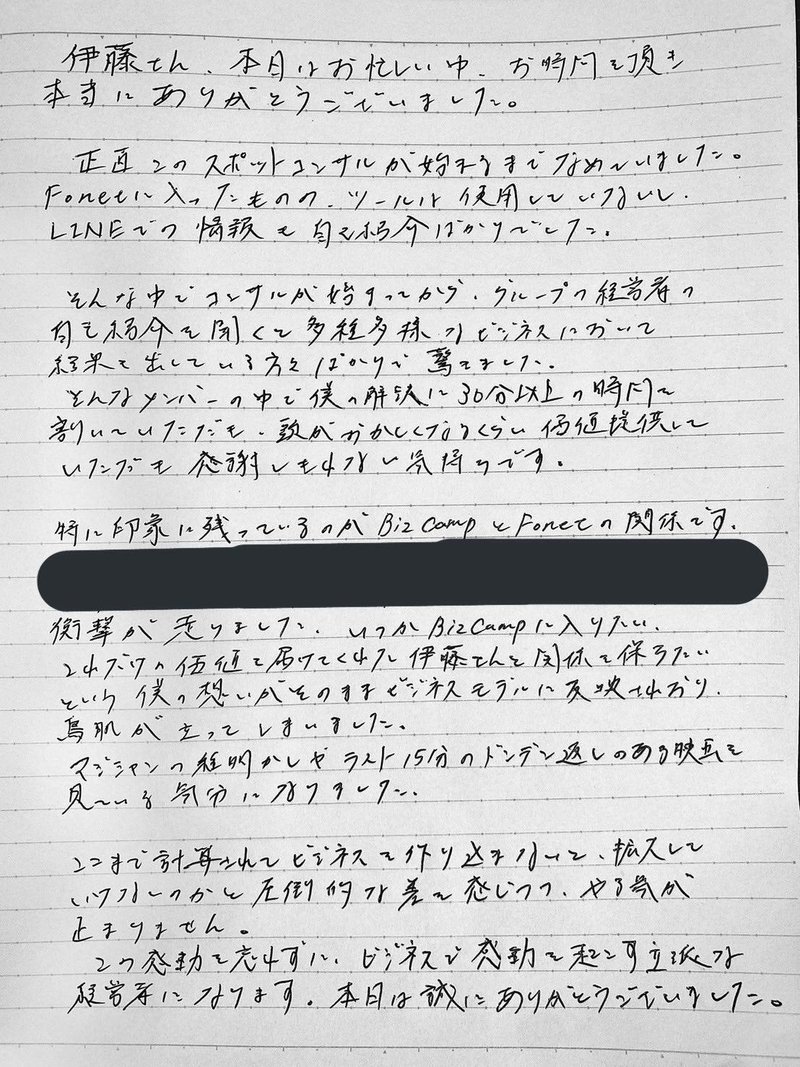 伊藤さん、本日はお忙しい中、お時間を頂き
本当にありがとうございました。
正直このスポットコンサルが始まるまでなめていました。
Fonetに入ったものの、ツールは使用していないし、
LINEでの情報も自己紹介ばかりでした。
そんな中でコンサルが始まってから、グループの経営者の
自己紹介を聞くと多種多様なビジネスにおいて
結果を出している方々ばかりで驚きました。
そんなメンバーの中で僕の解決に30分以上の時間を
割いていただき、頭がおかしくなるくらい価値提供して
いただき感謝しきれない気持ちです。
特に印象に残っているのがBizCampとFonetの関係です。
衝撃が走りました。いつかBizCampに入りたい、
これだけの価値を届けてくれた伊藤さんと関係を保ちたい
という僕の想いがそのままビジネスモデルに反映されており、
鳥肌が立ってしまいました。
マジシャンの種明かしやラスト15分のドンデン返しのある映画を
見ている気分になりました。
ここまで計算されてビジネスを作り込まないと、拡大して
いけないのかと圧倒的な差を感じつつ、やる気が
止まりません。
この感動を忘れずに、ビジネスで感動を起こす立派な
経営者になります。本日は誠にありがとうございました。